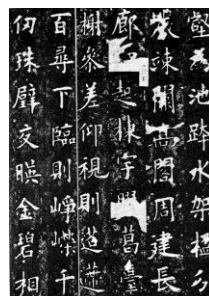 壑為池跨水架楹分
巖竦闕高閣周建長
廊四起棟宇膠葛臺
榭參差仰視則迢遰
百尋下臨則崢嶸千
仞珠璧交暎金碧相